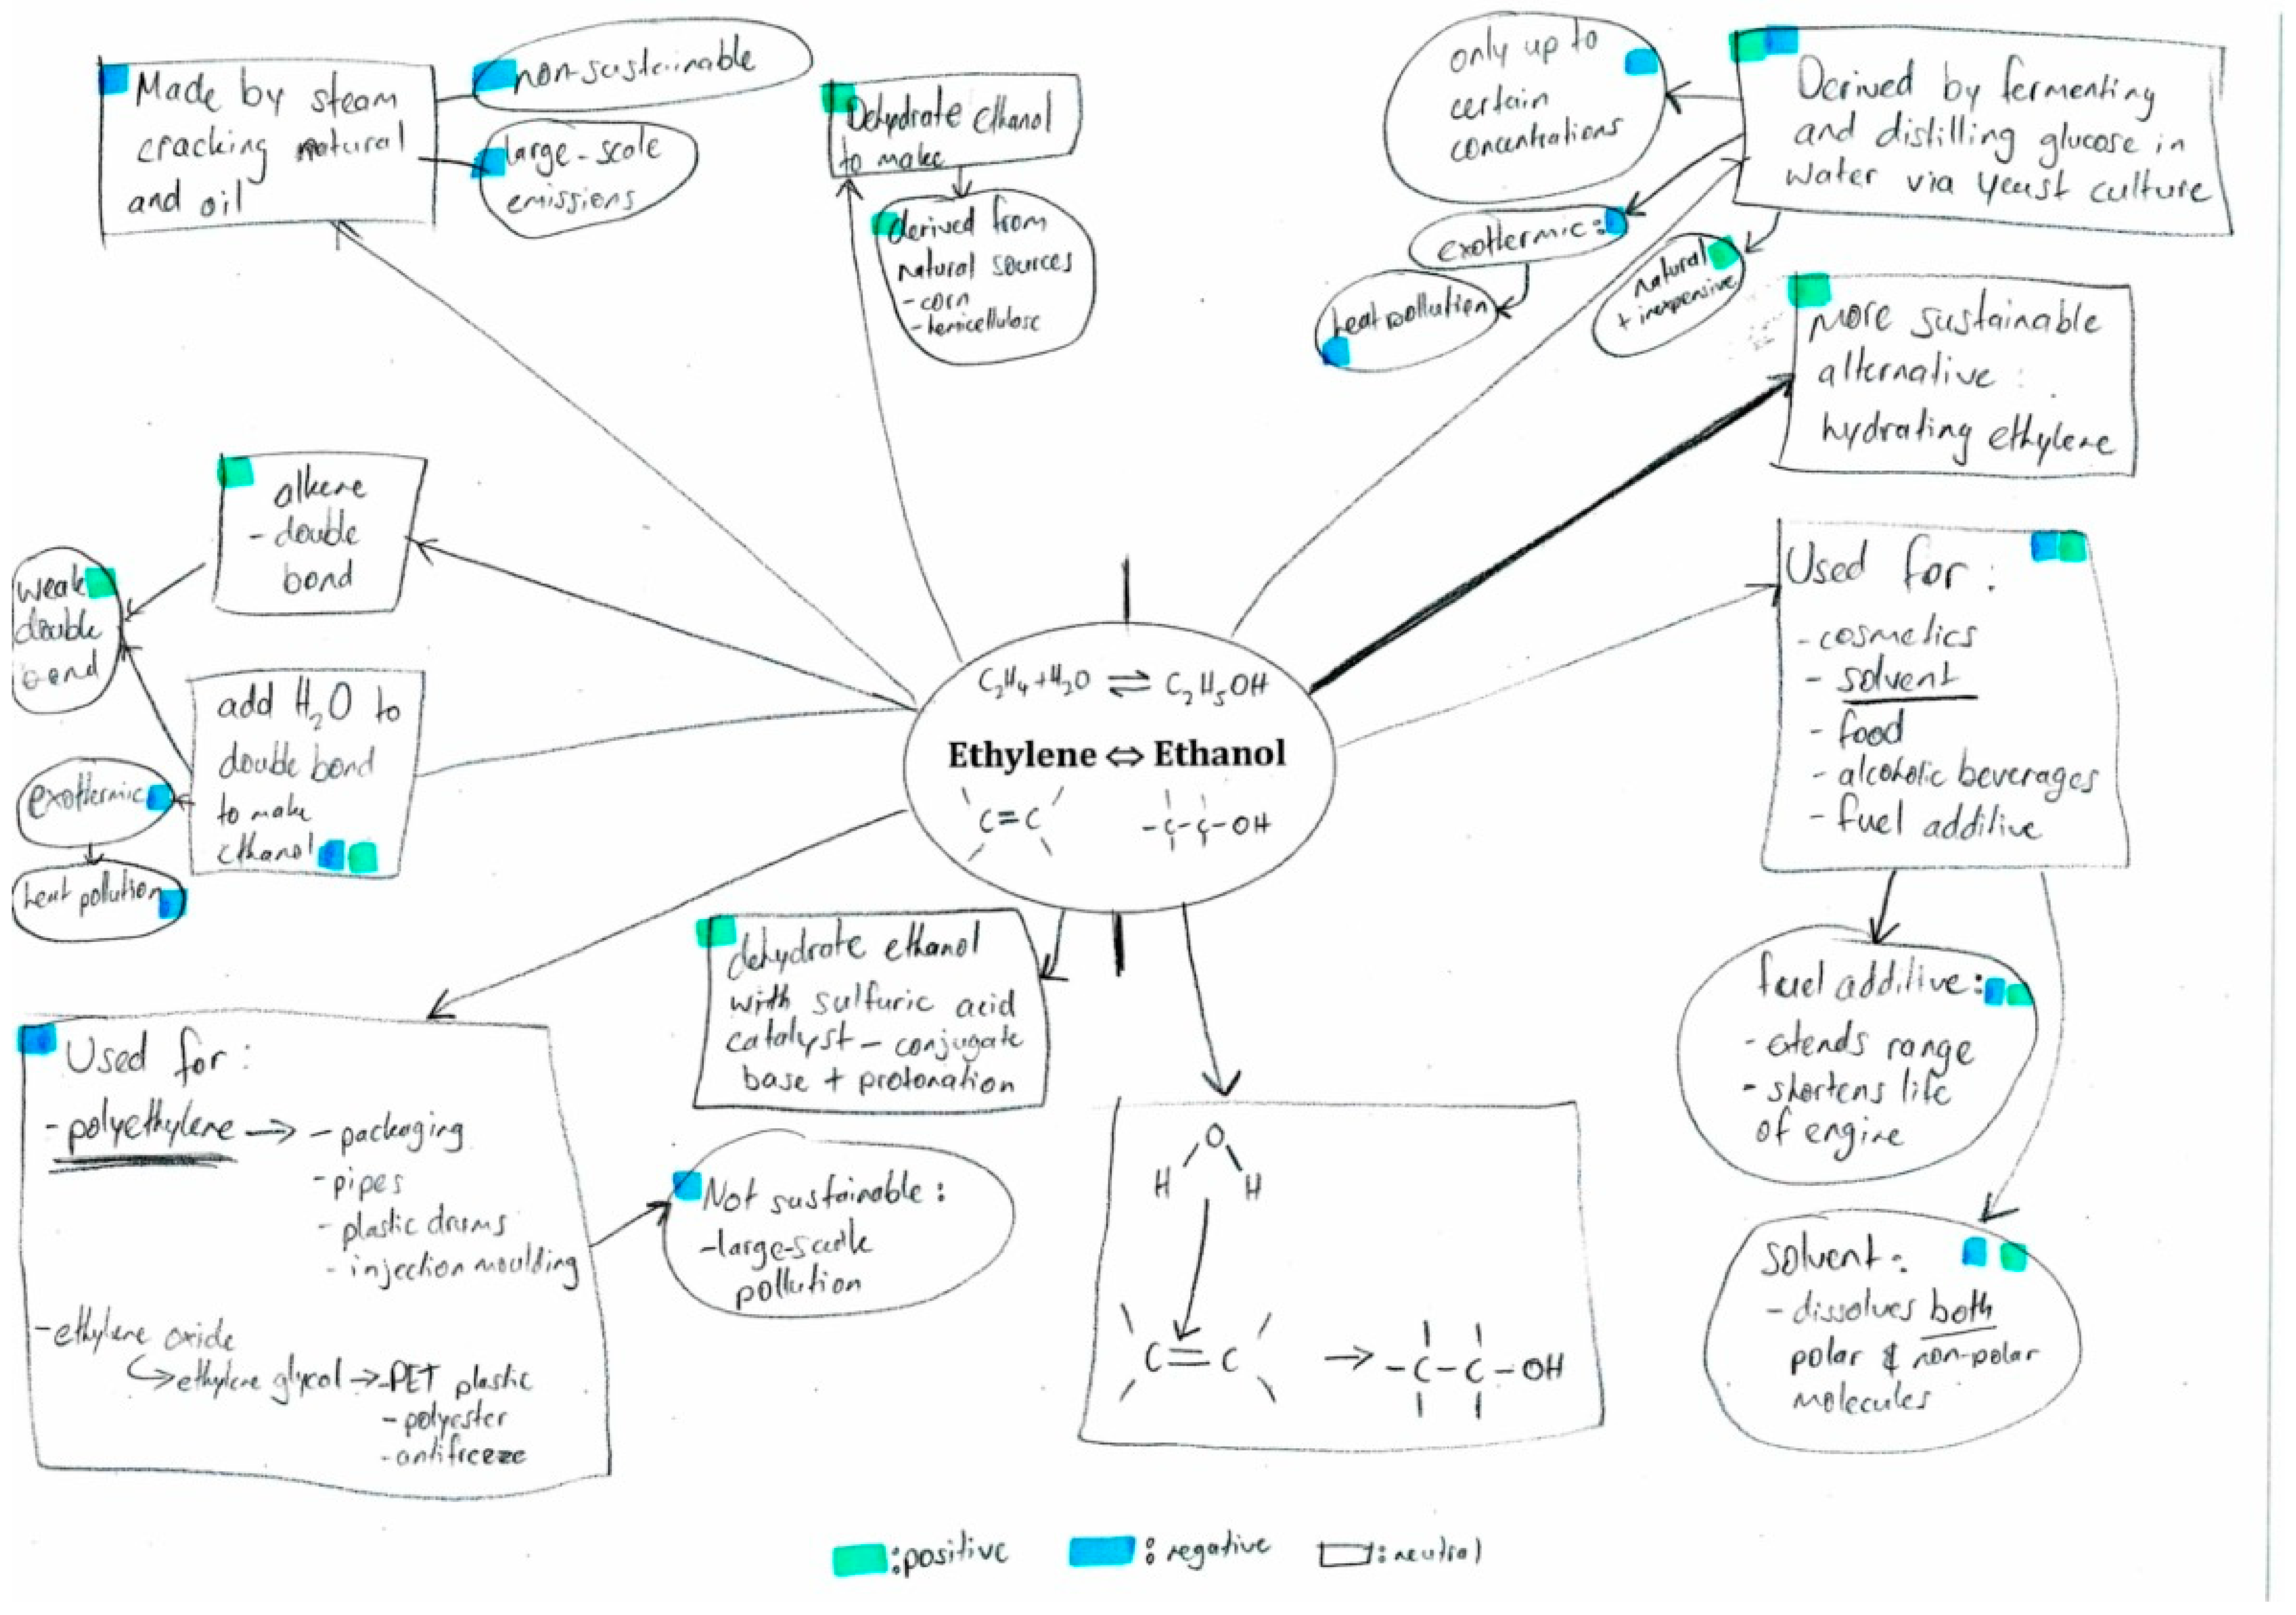 Made by steam
cracking natural
and oil
non-sustainable
large-scale
emissions
Dehydrate ethanol
to make
derived from
natural sources
- corn
- hemicellulose
only up to
certain
concentrations
Derived by fermenting
and distilling glucose in
water via yeast culture
exothermic:
heat pollution
natural
+ inexpensive
more sustainable
alternative:
hydrating ethylene
alkene
- double
bond
weak
double
bond
add H₂O to
double bond
to make
ethanol
exothermic
heat pollution
C₂H₄ + H₂O ⇌ C₂H₅OH
Ethylene ⇔ Ethanol
C=C
-C-C-OH
Used for:
- cosmetics
- solvent
- food
- alcoholic beverages
- fuel additive
fuel additive:
- extends range
- shortens life
of engine
solvent:
- dissolves both
polar & non-polar
molecules
dehydrate ethanol
with sulfuric acid
catalyst - conjugate
base + protonation
Used for:
- polyethylene → - packaging
- pipes
- plastic drums
- injection moulding
- ethylene oxide
↳ ethylene glycol → - PET plastic
- polyester
- antifreeze
Not sustainable:
- large-scale
pollution
O
H H
C=C → -C-C-OH
:positive :negative :neutral